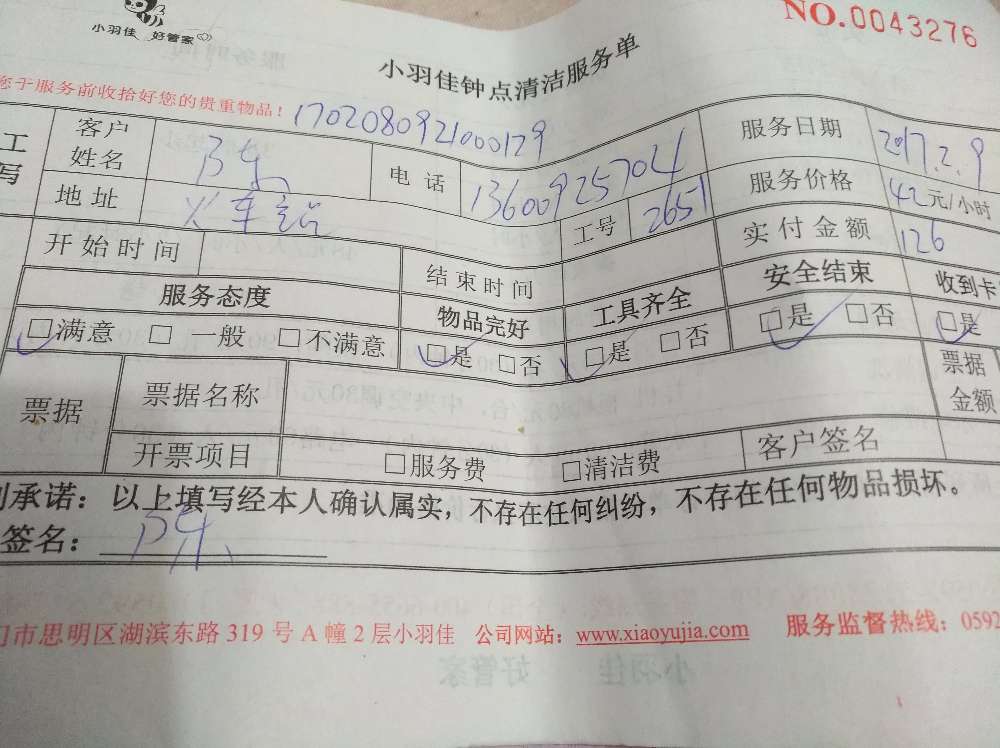 小羽佳 好管家
NO.0043276
小羽佳钟点清洁服务单
您于服务前收拾好您的贵重物品！
1702080921000129
工
写
客户
姓名
陈
电 话
13600925704
服务日期
2017.2.9
地 址
火车站
工号
2651
服务价格
42元/小时
开始时间
结束时间
实付金额
126
服务态度
物品完好
工具齐全
安全结束
收到卡
□满意 □ 一般 □不满意
□是 □否
□是 □否
□是 □否
□是
票据
票据名称
票据
金额
开票项目
□服务费 □清洁费
客户签名
承诺：以上填写经本人确认属实，不存在任何纠纷，不存在任何物品损坏。
签名：陈
门市思明区湖滨东路 319 号 A 幢 2 层小羽佳 公司网站：www.xiaoyujia.com 服务监督热线：0592